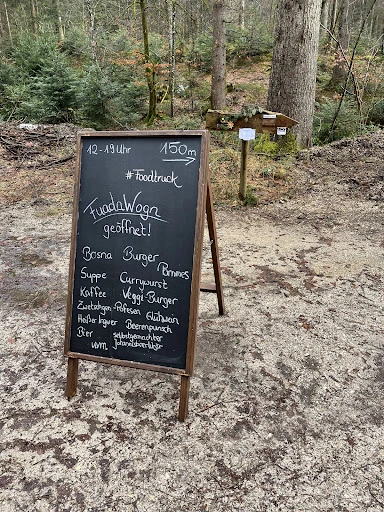 12-19 Uhr 150m
#Foodtruck
FuadaWogn
geöffnet!
Bosna Burger
Suppe Currywurst Pommes
Kaffee Veggi-Burger
Zwetschgen-Pofesen Glühwein
Heißer Ingwer Beerenpunsch
Bier selbstgemachter
uvm Johannisbeerlikör